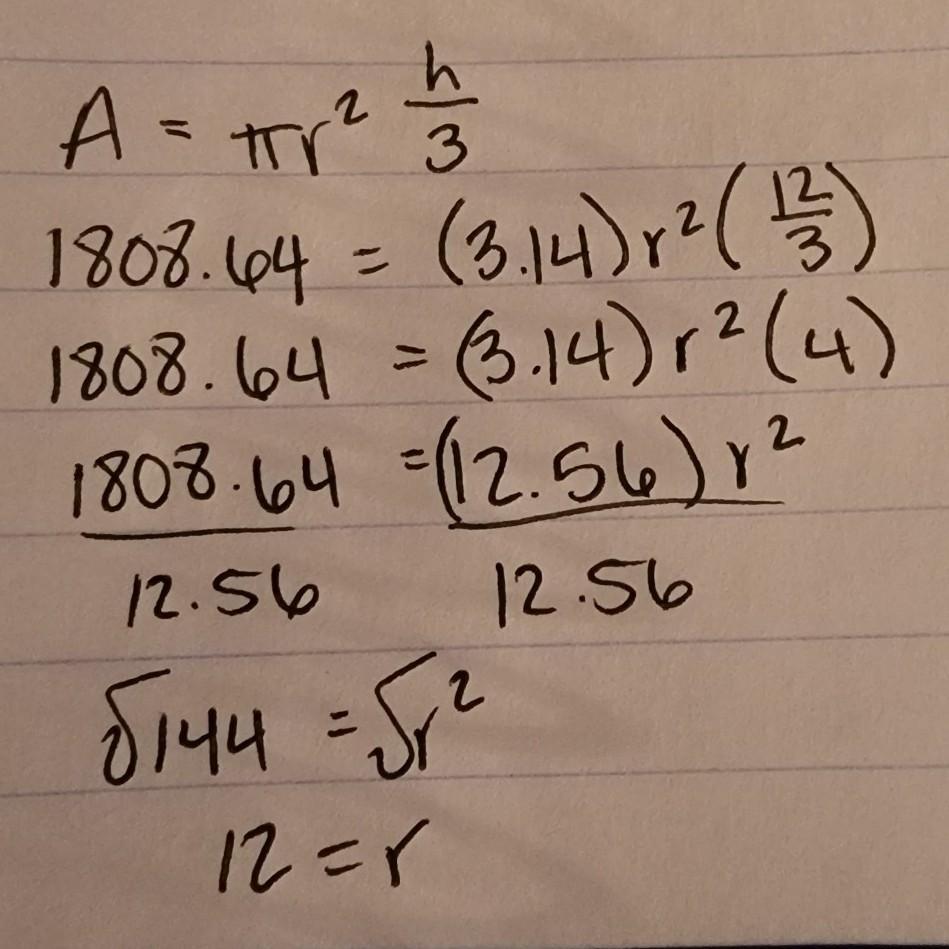 A = πr² h/3
1808.64 = (3.14)r²(12/3)
1808.64 = (3.14)r²(4)
1808.64 = (12.56)r²
12.56 12.56
√144 = √r²
12 = r